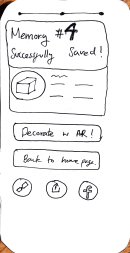 Memory #4
Successfully Saved!
Decorate w AR!
Back to homepage.